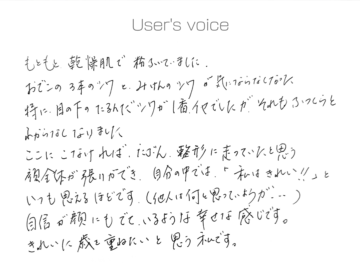 User's voice
もともと 乾燥肌で 粉ふいていました。
おでこの 3本のシワと みけんのシワ が 気にならなくなった
特に、目の下の たるんだシワが 1番イヤでしたが それも ふっくらと
わからなくなりました
ここに こなければ たぶん 整形に走っていたと思う
顔全体が張りができ、自分の中では 「私はきれい!!」と
いつも思えるほどです。(他人は何と思っていようが…)
自信が顔にもでているような 幸せな感じです。
きれいに 歳を重ねたいと 思う私です。